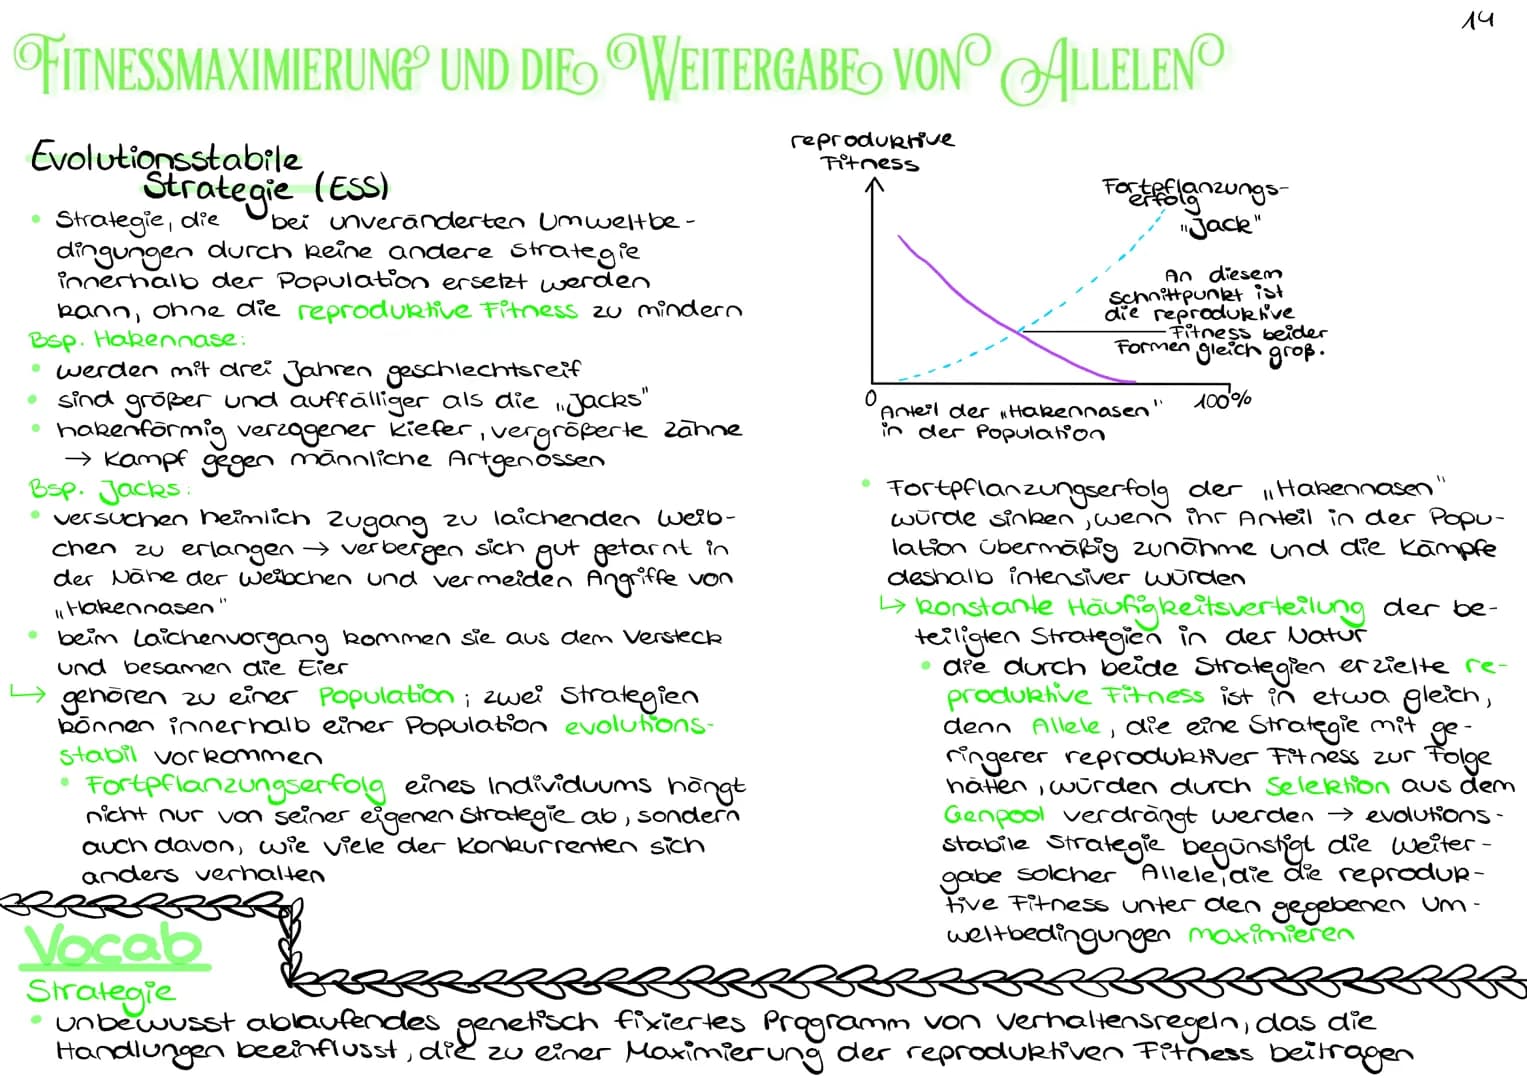 14
Fitnessmaximierung und die Weitergabe von Allelen
Evolutionsstabile
Strategie (ESS)
• Strategie, die bei unveränderten Umweltbe-
dingungen durch keine andere Strategie
innerhalb der Population ersetzt werden
kann, ohne die reproduktive Fitness zu mindern
Bsp. Hakennase:
• werden mit drei Jahren geschlechtsreif
• sind größer und auffälliger als die „Jacks"
• hakenförmig verzogener Kiefer, vergrößerte Zähne
→ Kampf gegen männliche Artgenossen
Bsp. Jacks:
• versuchen heimlich Zugang zu laichenden Weib-
chen zu erlangen → verbergen sich gut getarnt in
der Nähe der Weibchen und vermeiden Angriffe von
„Hakennasen"
• beim Laichenvorgang kommen sie aus dem Versteck
und besamen die Eier
↳ gehören zu einer Population; zwei Strategien
können innerhalb einer Population evolutions-
stabil vorkommen
• Fortpflanzungserfolg eines Individuums hängt
nicht nur von seiner eigenen Strategie ab, sondern
auch davon, wie viele der Konkurrenten sich
anders verhalten
reproduktive
Fitness
Fortpflanzungs-
erfolg
„Jack"
An diesem
Schnittpunkt ist
die reproduktive
Fitness beider
Formen gleich groß.
0
100%
Anteil der „Hakennasen"
in der Population
• Fortpflanzungserfolg der „Hakennasen"
würde sinken, wenn ihr Anteil in der Popu-
lation übermäßig zunähme und die Kämpfe
deshalb intensiver würden
↳ konstante Häufigkeitsverteilung der be-
teiligten Strategien in der Natur
• die durch beide Strategien erzielte re-
produktive Fitness ist in etwa gleich,
denn Allele, die eine Strategie mit ge-
ringerer reproduktiver Fitness zur Folge
hätten, würden durch Selektion aus dem
Genpool verdrängt werden → evolutions-
stabile Strategie begünstigt die Weiter-
gabe solcher Allele, die die reproduk-
tive Fitness unter den gegebenen Um-
weltbedingungen maximieren
Vocab
Strategie
• unbewusst ablaufendes genetisch fixiertes Programm von Verhaltensregeln, das die
Handlungen beeinflusst, die zu einer Maximierung der reproduktiven Fitness beitragen